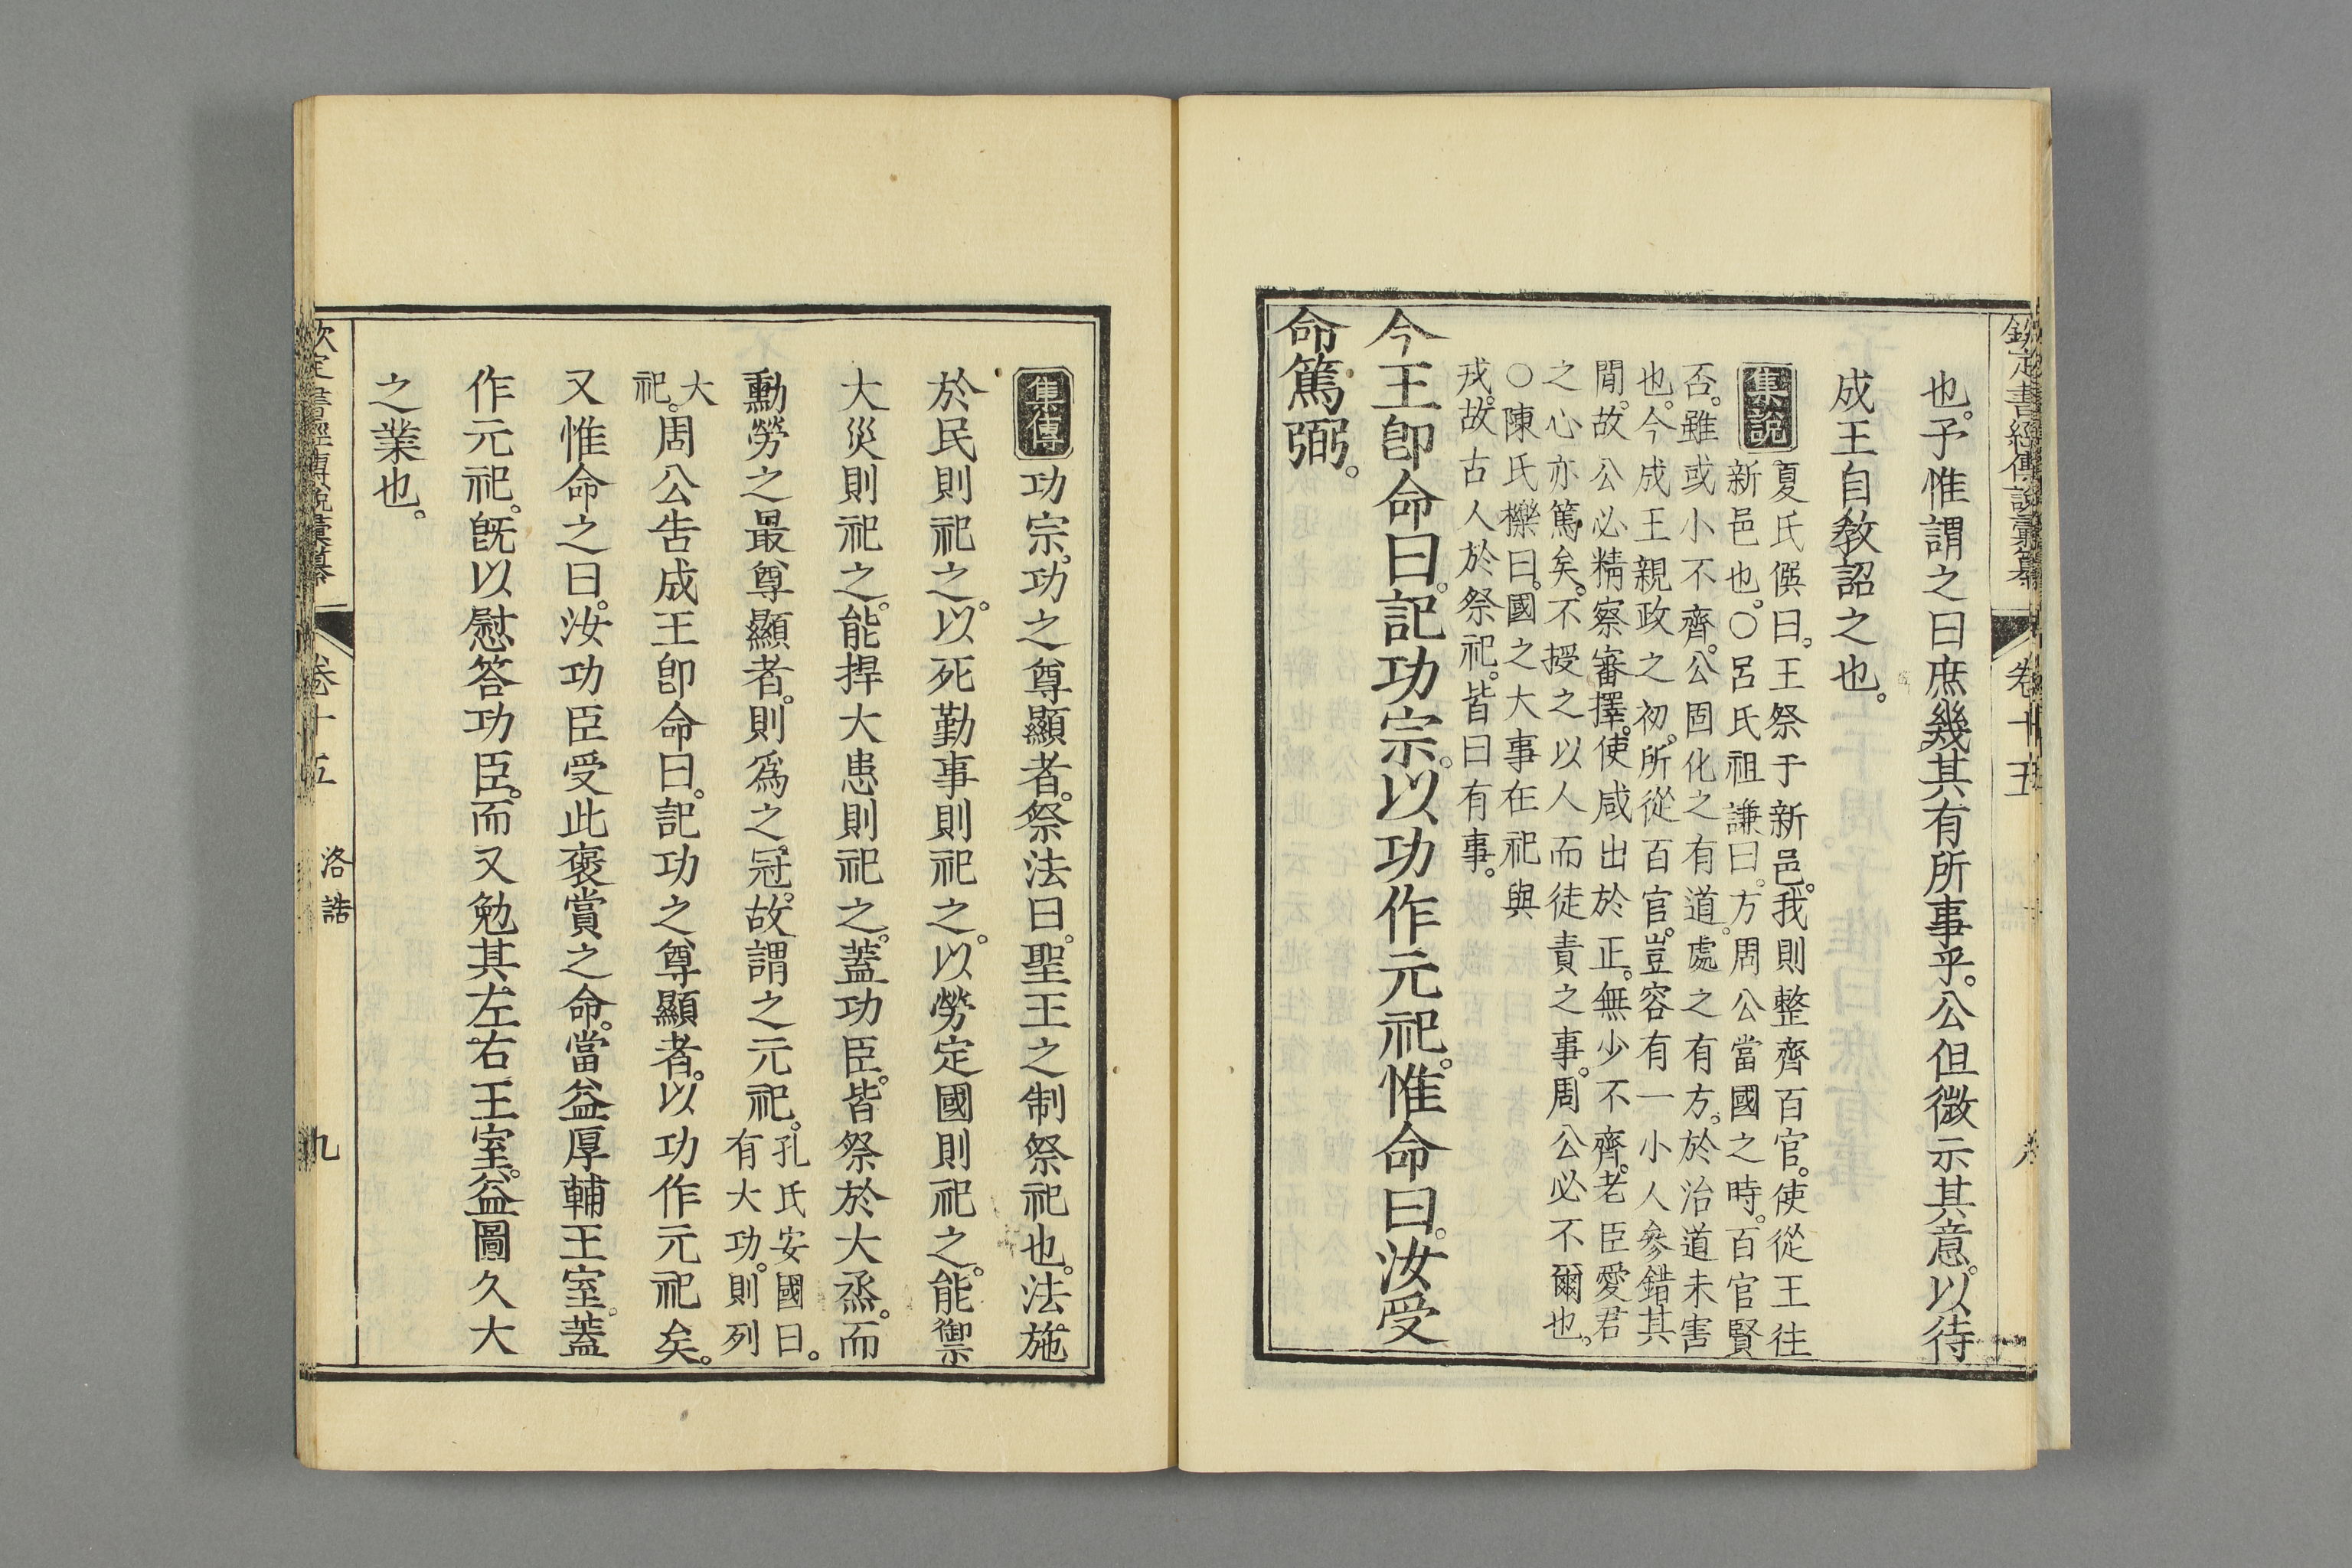 欽定書經傳說彙纂 卷十五
也。予惟謂之曰庶幾其有所事乎。公但微示其意。以待
成王自教詔之也。
集說
夏氏僎曰。王祭于新邑。我則整齊百官。使從王往
新邑也。○呂氏祖謙曰。方周公當國之時。百官賢
否。雖或小不齊。公固化之有道。處之有方。於治道未害
也。今成王親政之初。所從百官。豈容有一小人參錯其
閒。故公必精察審擇。使咸出於正。無少不齊。老臣愛君
之心亦篤矣。不授之以人而徒責之事。周公必不爾也。
○陳氏櫟曰。國之大事在祀與
戎。故古人於祭祀。皆曰有事。
今王卽命曰。記功宗。以功作元祀。惟命曰。汝受
命篤弼。
集傳
功宗。功之尊顯者。祭法曰。聖王之制祭祀也。法施
於民則祀之。以死勤事則祀之。以勞定國則祀之。能禦
大災則祀之。能捍大患則祀之。蓋功臣。皆祭於大烝。而
勳勞之最尊顯者。則爲之冠。故謂之元祀。孔氏安國曰。
有大功。則列
大
祀。周公告成王卽命曰。記功之尊顯者。以功作元祀矣。
又惟命之曰。汝功臣受此褒賞之命。當益厚輔王室。蓋
作元祀。旣以慰答功臣。而又勉其左右王室。益圖久大
之業也。
欽定書經傳說彙纂 卷十五 洛誥 九